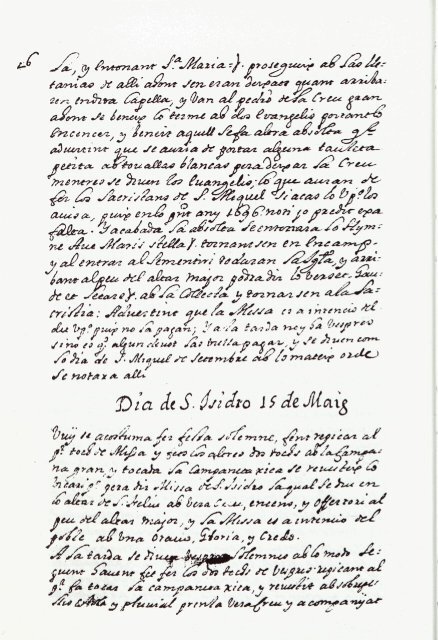 26
sa, y entonant S.ª Maria = y. proseguip ab las lle-
tanias de alli adont sen eran depart quant arriba-
ren en dita Capella, y Van al pedro de la Creu gran
adont se beneip lo terme ab dos Evangelis portant lo
encencer, y beneit aquell se fa altra absolta
advertint que se auria de portar alguna tauleta
petita ab tovallas blancas pera la Creu
mentres se diuen los Evangelis; lo que auran de
fer los Sacristans de S. Miquel si acas lo
avisa, puix en lo pnt any 1696. non y predit expa
falta. Y acabada la absolta se entonara lo Hym-
ne Ave Maris stella y. tornantsen en Encamp
y al entrar al Sementiri tocaran la y arri-
bant al peu del altar major podra dir lo verset. Gau-
de et letare y. ab la Collecta y tornarsen a la Sa-
cristia: Advertint que la Missa es a intencio del
dit puix no la pagan; Y a la tarda no y ha Vespres
sino es q. algun devot las vulla pagar, y se diuen com
lo dia de S. Miquel de Setembre ab lo mateix orde
se notara alli
Dia de S. Isidro 15 de Maig
Vuy se acostuma fer festa solemne, fent repicar al
p.r toch de Missa y fer los altres dos tochs ab la Campa-
na gran, y tocada la Campaneta xica se revestip lo
Vicari pera dir Missa de S. Isidro la qual se diu en
lo altar de S. Feliu ab Vera Creu, encens, y offertori al
peu del altar major, y la Missa es a intencio del
poble ab Una Oracio, Gloria, y Credo.
A la tarda se diuen Vespres Solemnes ab lo modo Se-
guent havent fet fer los dos tochs de Vespres repicant al
fa tocar la campaneta xica, y revestit ab sobrepellis
Estola y pluvial prenla Vera Creu y acompanyat